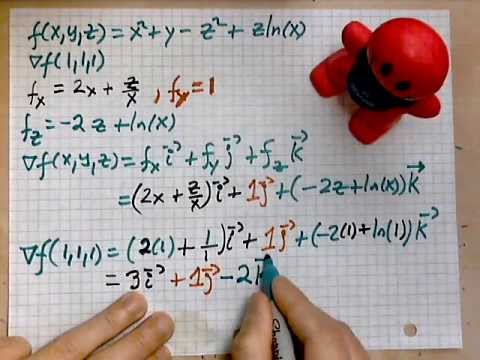 f(x,y,z) = x² + y - z² + z ln(x)
∇f(1,1,1)
fₓ = 2x + z/x , f_y = 1
f_z = -2z + ln(x)
∇f(x,y,z) = fₓ i⃗ + f_y j⃗ + f_z k⃗
= (2x + z/x) i⃗ + 1j⃗ + (-2z + ln(x)) k⃗
∇f(1,1,1) = (2(1) + 1/1) i⃗ + 1j⃗ + (-2(1) + ln(1)) k⃗
= 3i⃗ + 1j⃗ - 2k⃗